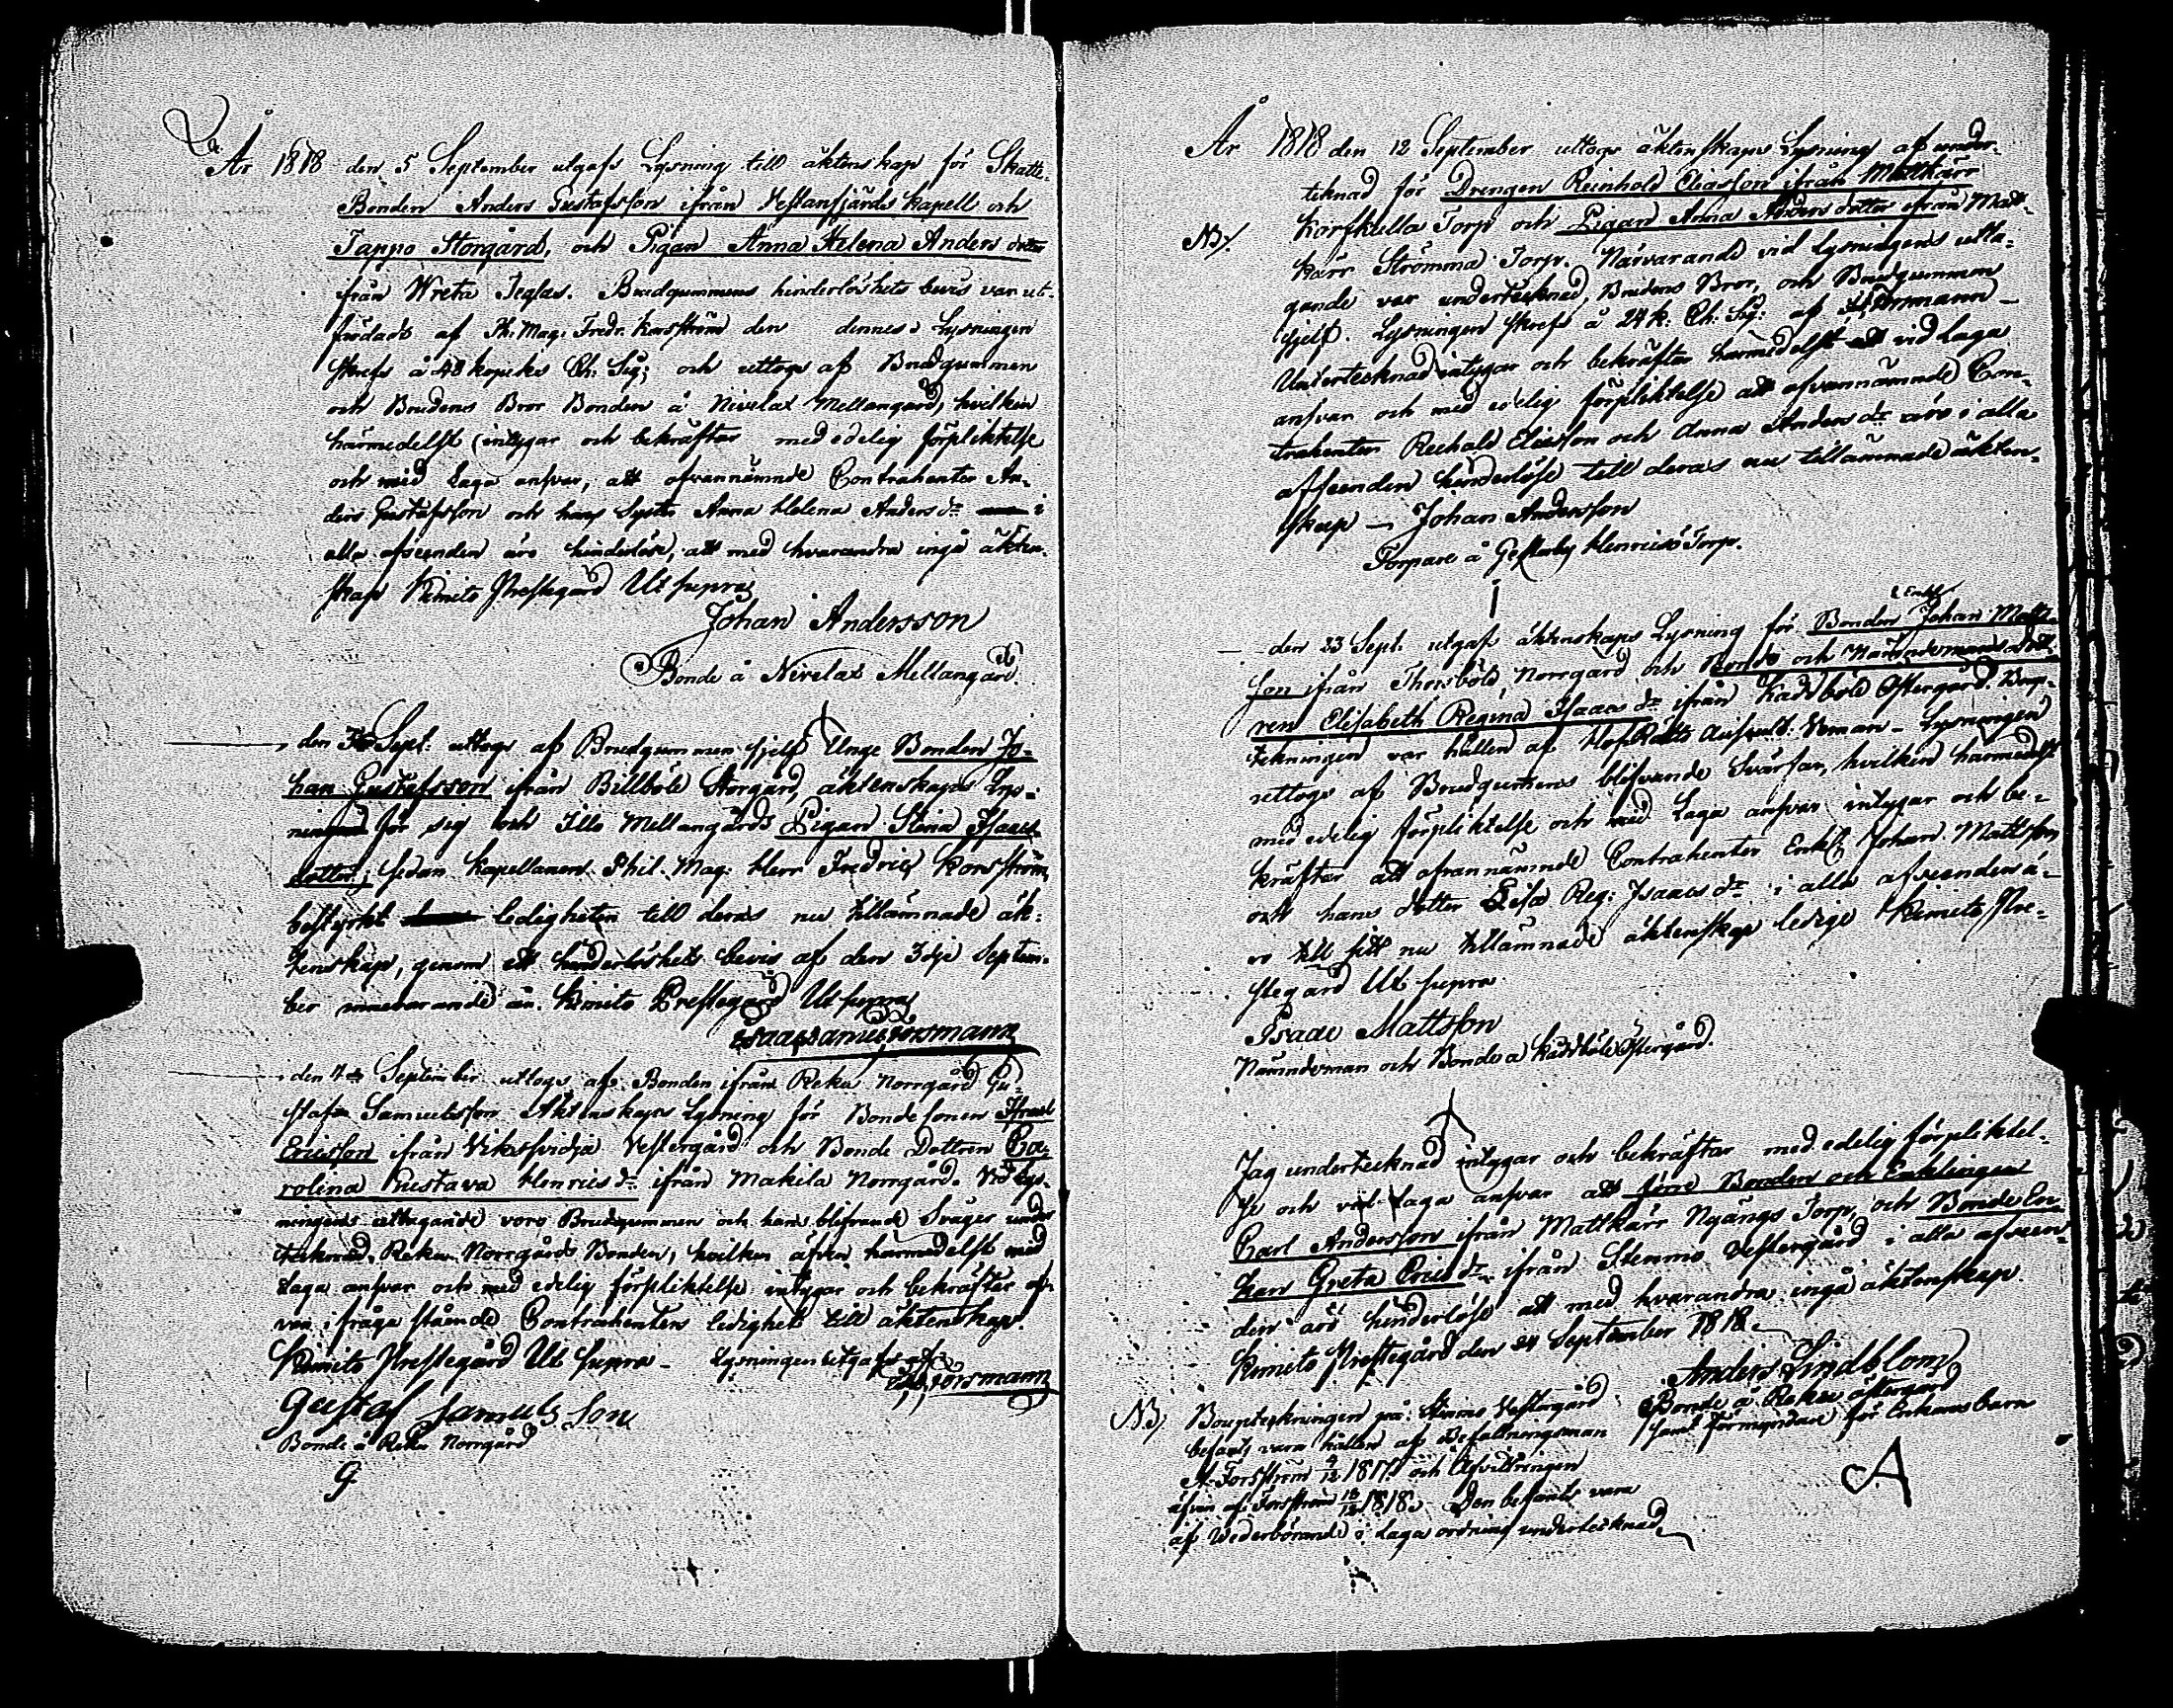 År 1818 den 5 September utgafs Lysning till äktenskap för Skatte-
Bonden Anders Gustafsson ifrån Vestanfjärds Kapell och
Tappo Storgård, och Pigan Anna Helena Anders dotter
från Wreta Jeglas. Brudgummens hinderlöshets bevis var ut-
färdadt af Ph. Mag. Fredr. Korsström den dennes. Lysningen
skrefs å 48 kopeks Ch: Sig; och uttogs af Brudgummen
och Brudens Bror Bonden å Nivelax Mellangård, hvilken
härmedelst intygar och bekräftar med edelig förpliktelse
och vid Laga answar, att ofvannämnde Contrahenter An-
ders Gustafsson och hans Syster Anna Helena Anders dr i
alla afseenden äro hinderlöse, att med hvarandra ingå äkten-
skap Kimito Prestegård Ut supra
Johan Andersson
Bonde å Nivelax Mellangård.
den Sept: uttogs af Brudgummen sjelf Unge Bonden Jo-
han Gustafsson ifrån Billböle Storgård, äktenskaps Lys-
ning för sig och Illo Mellangårds Pigan Stina Isaacs
dotter; sedan Kapellanen Phil. Mag: Herr Fredric Korsström
bestyrkt ledigheten till deras nu tillämnade äk-
tenskap, genom ett hinderlöshets bevis af den 3dje Septem-
ber innevarande år. Kimito Prestegård Ut supra
den 7de September uttogs af Bonden ifrån Reku Norrgård Gu-
staf Samuelsson Äktenskaps Lysning för Bondesonen Israel
Ericsson ifrån Viksvidja Vestergård och Bonde Dottren Ca-
rolina Gustava Henrics dr ifrån Makila Norrgård. Vid Lys-
ningens uttagande voro Brudgummen och hans blifvande Svåger under
tecknad, Reku Norrgårds Bonden, hvilken äfven härmedelst med
Laga answar och med edelig förpliktelse intygar och bekräftar of-
van i fråga stående Contrahenters ledighet till äktenskap.
Kimito Prestegård Ut supra - Lysningen utgafs af
Gustaf Samuels Son
Bonde å Reku Norrgård
G
År 1818 den 12 September uttogs äktenskaps Lysning af under-
teknad för Drengen Reinhold Eliasson ifrån Mattkärr
NB/. Korfkulla Torp och Pigan Anna Anders dotter ifrån Matt-
kärr Strömma Torp. Närvarande vid Lysningens utta-
gande var undertecknad, Brudens Bror, och Brudgummen
sjelf. Lysningen skrefs å 24 k: Ch: Sig: af
Undertecknad intygar och bekräftar härmedelst vid Laga
answar och med edelig förpliktelse att ofvannämnde Con-
trahenter Reehald Eliasson och Anna Anders dr äro i alla
afseenden hinderlöse till deras nu tillämnade äkten-
skap - Johan Andersson
Torpare å Gesterby Henriksö Torp.
den 23 Sept. utgafs äktenskaps Lysning för Bonden Enkl. Johan Matts-
son ifrån Thorsböle Norrgård och Bonde och Nämndemans dott-
ren Elisabeth Regina Isaacs dr ifrån Kaddböle Östergård. Boup-
tekningen var hållen af HofRätts Auscult: Roman - Lysningen
uttogs af Brudgummens blifvande Svärfar, hvilken härmedelst
med edelig förpliktelse och vid Laga answar intygar och be-
kräftar att ofvannämnde Contrahenter Enkl: Johan Mattsson
och hans dotter Lisa Reg: Isaacs dr i alla afseenden ä-
ro till sitt nu tillämnade äktenskap ledige Kimito Pre-
stegård Ut supra
Isaac Mattsson
Nämndeman och Bonde å Kaddböle Östergård.
Jag undertecknad intygar och bekräftar med edelig förpliktel-
se och vid Laga answar att förre Bonden och Enklingen
Carl Andersson ifrån Mattkärr Nyängs Torp, och Bonde En-
kan Greta Erics dr ifrån Stenmo Vestergård i alla afseen-
den äro hinderlöse att med hvarandra ingå äktenskap.
Kimito Prestegård den 24 September 1818.
Anders Lindblom
Bonde å Reku östergård
samt Förmyndare för Enkans barn
A
NB/ Bouptekningen på Vestergård
befants vara hållen af Befallningsman
A. Forsström 4/12 1817 och Afvittringen
äfven af Forsström 1818. Den befants vara
af Wederbörande i Laga ordning undertecknad